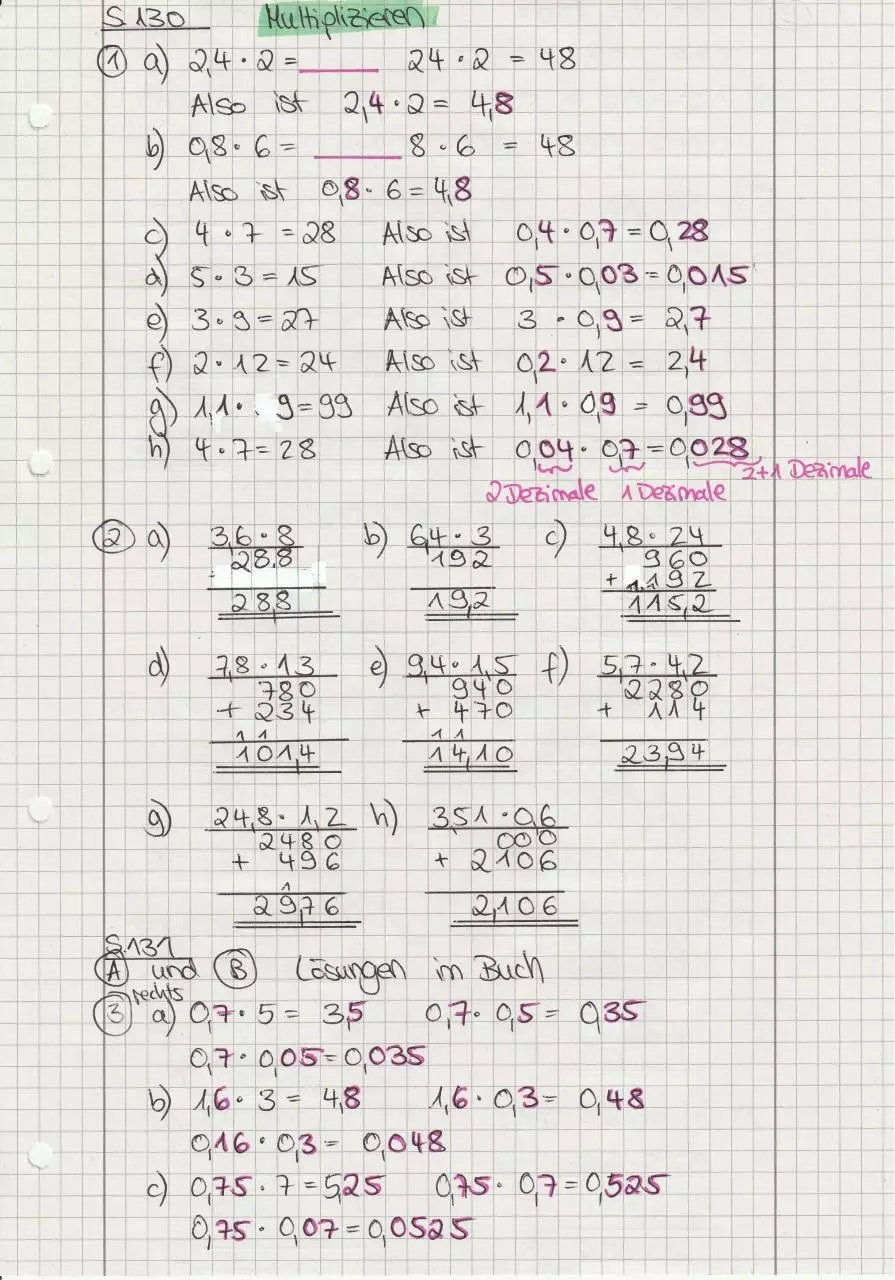 S.130 Multiplizieren
1 a) 2,4 · 2 = ____ 24 · 2 = 48
Also ist 2,4 · 2 = 4,8
b) 0,8 · 6 = ____ 8 · 6 = 48
Also ist 0,8 · 6 = 4,8
c) 4 · 7 = 28 Also ist 0,4 · 0,7 = 0,28
d) 5 · 3 = 15 Also ist 0,5 · 0,03 = 0,015
e) 3 · 9 = 27 Also ist 3 · 0,9 = 2,7
f) 2 · 12 = 24 Also ist 0,2 · 12 = 2,4
g) 1,1 · 9 = 99 Also ist 1,1 · 0,9 = 0,99
h) 4 · 7 = 28 Also ist 0,04 · 0,7 = 0,028
2 Dezimale 1 Dezimale 2+1 Dezimale
2 a) 3,6 · 8 b) 6,4 · 3 c) 4,8 · 24
28,8 192 960
+ 192
28,8 19,2 115,2
d) 7,8 · 13 e) 9,4 · 1,5 f) 5,7 · 4,2
780 940 2280
+ 234 + 470 + 114
1 1 1 1
101,4 14,10 23,94
g) 24,8 · 1,2 h) 3,51 · 0,6
2480 000
+ 496 + 2106
1
29,76 2,106
S.131
A und B Lösungen im Buch
rechts
3 a) 0,7 · 5 = 3,5 0,7 · 0,5 = 0,35
0,7 · 0,05 = 0,035
b) 1,6 · 3 = 4,8 1,6 · 0,3 = 0,48
0,16 · 0,3 = 0,048
c) 0,75 · 7 = 5,25 0,75 · 0,7 = 0,525
0,75 · 0,07 = 0,0525